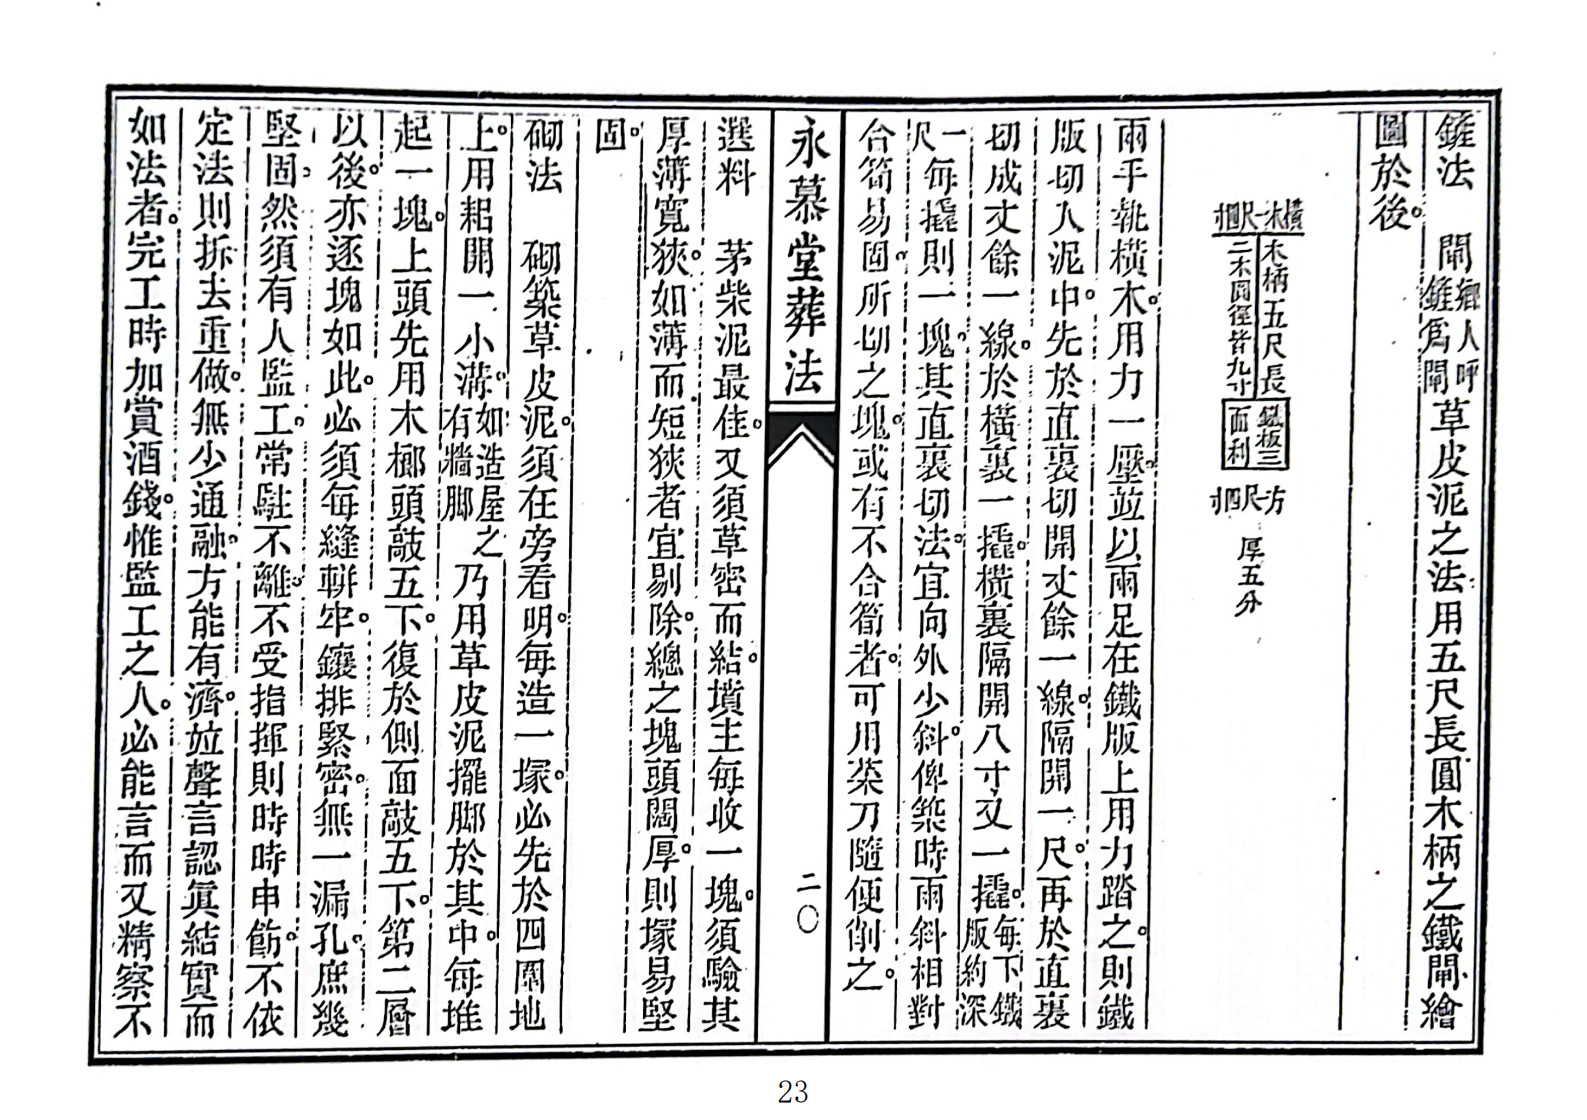 鏟法　閘鄉人呼鏟爲閘草皮泥之法用五尺長圓木柄之鐵閘繪
圖於後。
橫木一尺四寸
木柄五尺長
二木圓徑皆九寸
鐵板三
面利
方一尺四寸
厚五分
兩手執橫木。用力一壓。並以兩足在鐵版上用力踏之。則鐵
版切入泥中。先於直裏切開丈餘一線。隔開一尺。再於直裏
切成丈餘一線。於橫裏一撬。橫裏隔開八寸又一撬。每下鐵版約深
一尺每撬則一塊。其直裏切法。宜向外少斜。俾築時兩斜相對
合筍易固。所切之塊。或有不合筍者。可用菜刀隨便削之。
永慕堂葬法
二〇
選料　茅柴泥最佳。又須草密而結。墳主每收一塊。須驗其
厚薄寬狹。如薄而短狹者宜剔除。總之塊頭闊厚。則塚易堅
固。
砌法　砌築草皮泥。須在旁看明。每造一塚。必先於四圍地
上。用耜開一小溝。如造屋之有牆脚乃用草皮泥擺脚於其中。每堆
起一塊。上頭先用木榔頭敲五下。復於側面敲五下。第二層
以後。亦逐塊如此。必須每縫輧牢。鑲排緊密。無一漏孔。庶幾
堅固。然須有人監工。常駐不離。不受指揮則時時申飭。不依
定法則拆去重做。無少通融。方能有濟。並聲言認眞結實而
如法者。完工時加賞酒錢。惟監工之人。必能言而又精察不
23